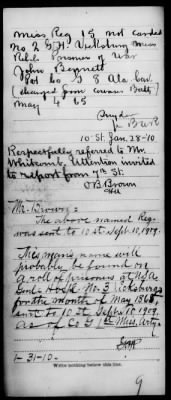 Miss Reg 15 not carded
No 2 G.H. Vicksburg Miss
Rebel Prisoner of War
John Bennett
Pvt Co G 8 Ala Cav
May 4 65
10 St. Jan. 28-10
Respectfully referred to Mr.
Whitcomb, Attention invited
to report from 7th St.
O B Brown
Mr. Brown:
The above named Reg.
was sent to 10 St. Sept. 10, 1909.
This man's name will
probably be found on
a roll of prisoners at U.S.A.
Genl. Hosp. No. 3 Vicksburg
for the month of May 1865,
sent to 10 St. Sept. 10, 1909.
as of Co G 1st Miss. Arty.
1-31-10.
Write nothing below this line.
9